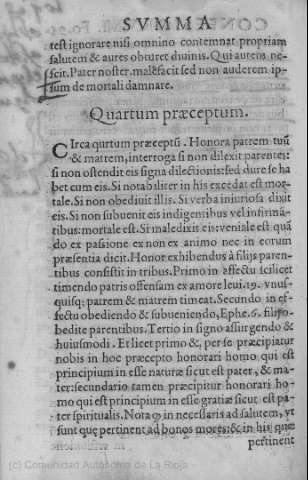 SVMMA
test ignorare nisi omnino contemnat propriam
salutem & aures obturet diuinis. Qui autem ne-
scit. Pater noster. malefacit sed non auderem ip-
sum de mortali damnare.
Quartum præceptum.
CIrca qurtum præceptũ. Honora patrem tuũ
& matrem, interroga si non dilexit parentes:
si non ostendit eis signa dilectionis: sed dure se ha
bet cum eis. Si notabiliter in his excedat est mor-
tale. Si non obediuit illis. Si verba iniuriosa dixit
eis. Si non subuenit eis indigentibus vel infirmi-
tibus: mortale est. Si maledixit eis: veniale est quã
do ex pasione ex non ex animo nec in eorum
præsentia dicit. Honor exhibendus à filijs paren-
tibus consistit in tribus. Primo in affectu scilicet
timendo patris offensam ex amore leui. 19. vnus-
quisq; patrem & matrem timeat. Secundo in ef-
fectu obediendo & subueniendo, Ephe. 6. filij o-
bedite parentibus. Tertio in signo assurgendo &
huiusmodi. Et licet primo &, per se præcipiatur
nobis in hoc præcepto honorari homo qui est
principium in esse naturæ sicut est pater, & ma-
ter: secundario tamen præcipitur honorari ho-
mo qui est principium in esse gratiæ sicut est pa-
ter spiritualis. Nota in necessarijs ad salutem, vt
sunt quę pertinent ad bonos mores: & in his quæ
pertinent
(c) Comunidad Autónoma de La Rioja